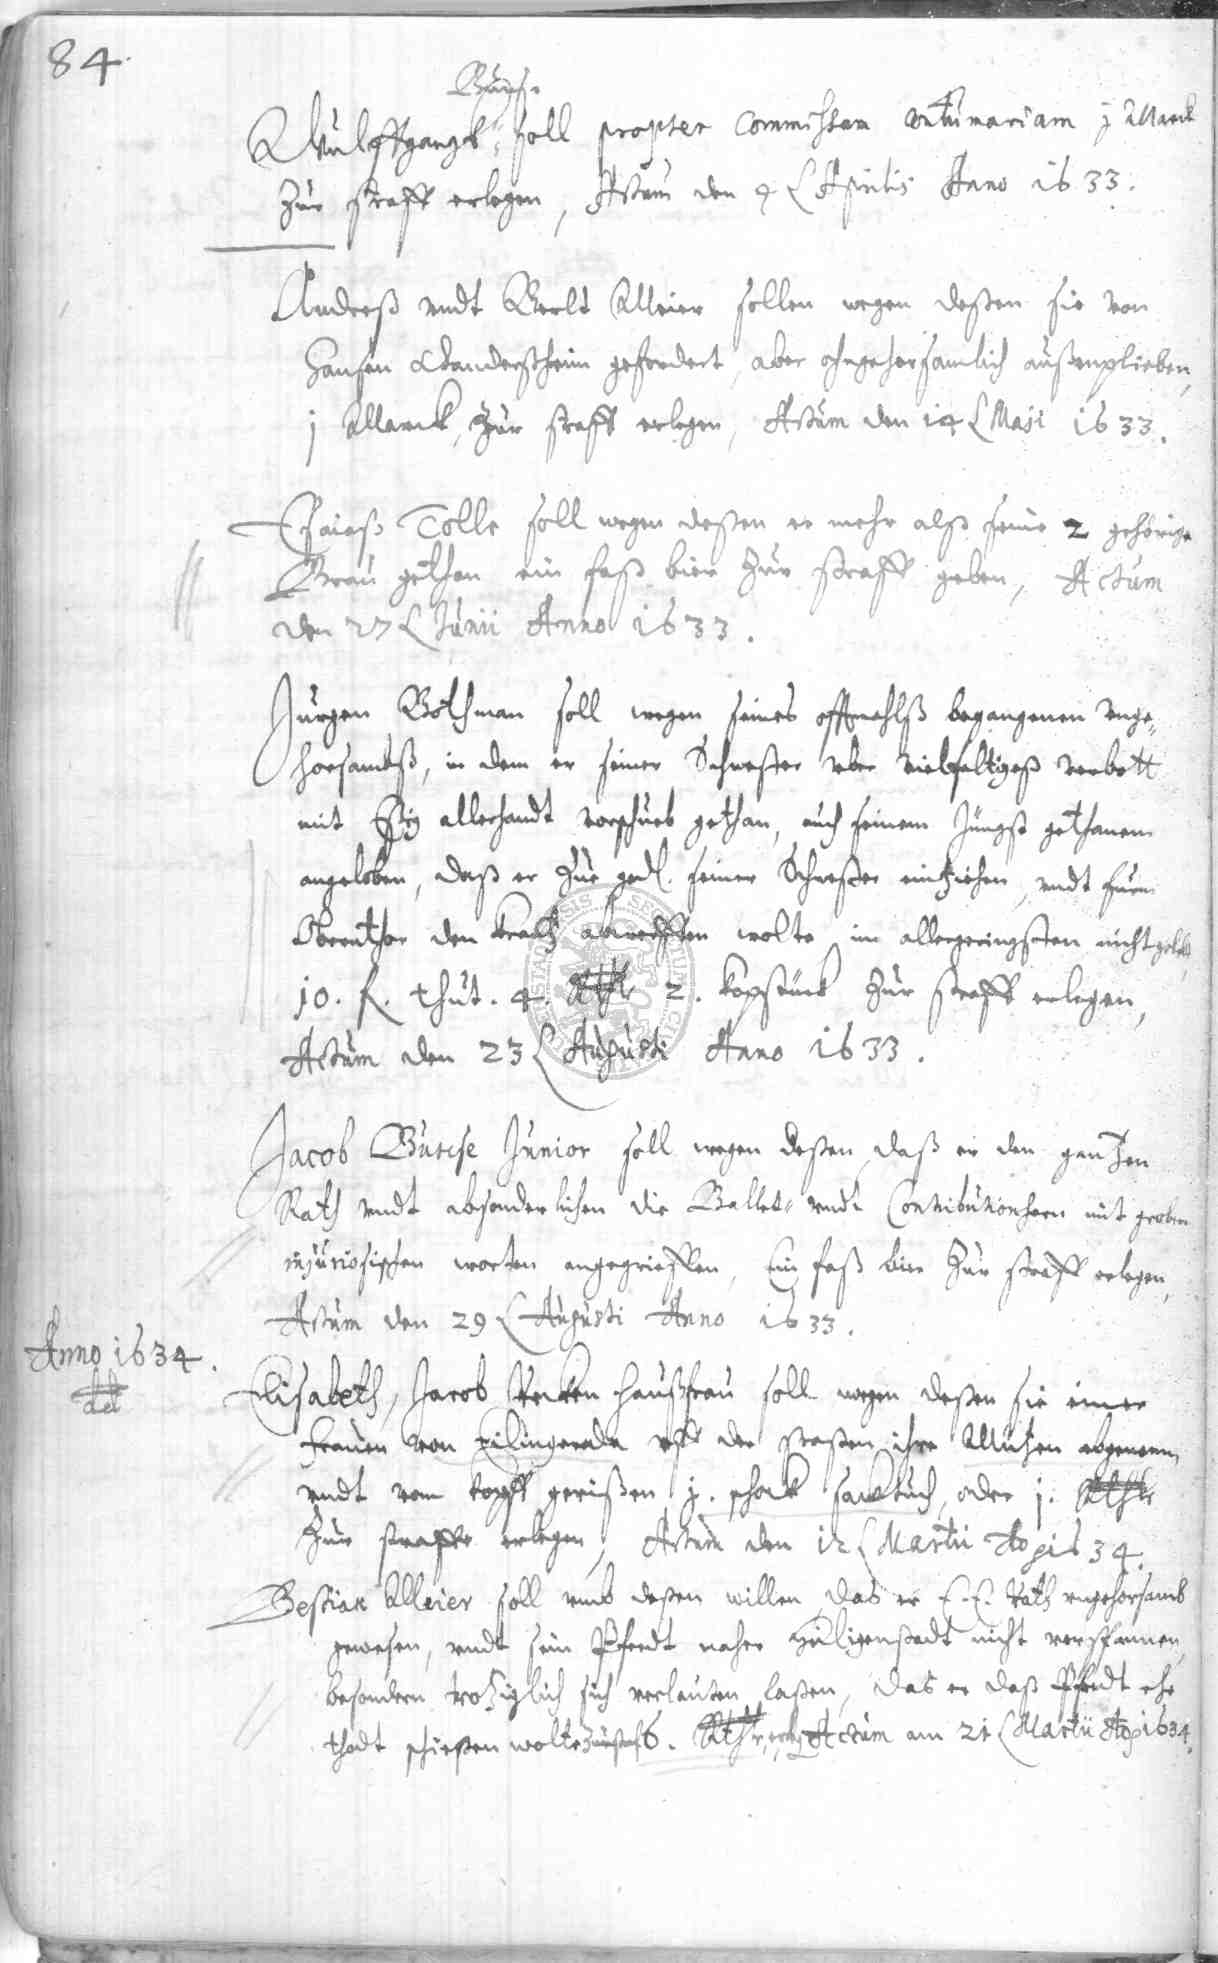 84.
Wulffgangk Buese soll propter commissam contumaciam j Marck
Zur straff erlegen, Actum den 4 Aprilis Anno 1633.
Andreß undt Berlt Meier sollen wegen deßen sie von
Hansen Ganderßheim gefordert, aber ohngehorsamlich außenplieben,
j Marck, Zur straff erlegen, Actum den 14 Maji 1633.
Esaiaß Tolle soll wegen deßen er mehr alß seine 2 gehörige
Brau gethan ein faß bier Zur straff geben, Actum
den 27 Junii Anno 1633.
Jurgen Bothman soll wegen seines offtmahlß begangenen unge=
horsambß, in dem er seiner Schwester uber vielfaltigeß verbott
mit allerhandt vorschueb gethan, auch seinem Jüngst gethanem
angeloben, daß er Zue seiner Schwester einziehen, undt furm
Obernthor den wolte, im allergeringsten nicht gelebt,
10. fl. thut. 4. Rthlr 2. Kopstück Zur straff erlegen,
Actum den 23 Augusti Anno 1633.
Jacob Burese Junior soll wegen deßen, daß er den gantzen
Rath undt absonderlichen die undt Contributionhern mit groben
injuriosischen worten angegrieffen, Ein faß bier Zur straff erlegen,
Actum den 29 Augusti Anno 1633.
Anno 1634.
Elisabeth, Jacob haußfrau soll wegen deßen sie einer
frauen von Bilingeroda uff der straßen ihre Mutzen abgenom,
undt vom kopff gerißen j. schock sacktuch, oder j. Rthlr
Zur straffe erlegen, Actum den 12 Martii Ao 1634.
Bestian Meier soll umb deßen willen, das er E. E. Rath ungehorsamb
gewesen, undt sein Pferdt naher Heiligenstadt nicht verspannen,
besondern trotziglich sich verlauten laßen, das er daß Pferdt ehe
thodt schießen wolte Zur straf 6. Rthlr, Actum am 21 Martii Ao 1634.